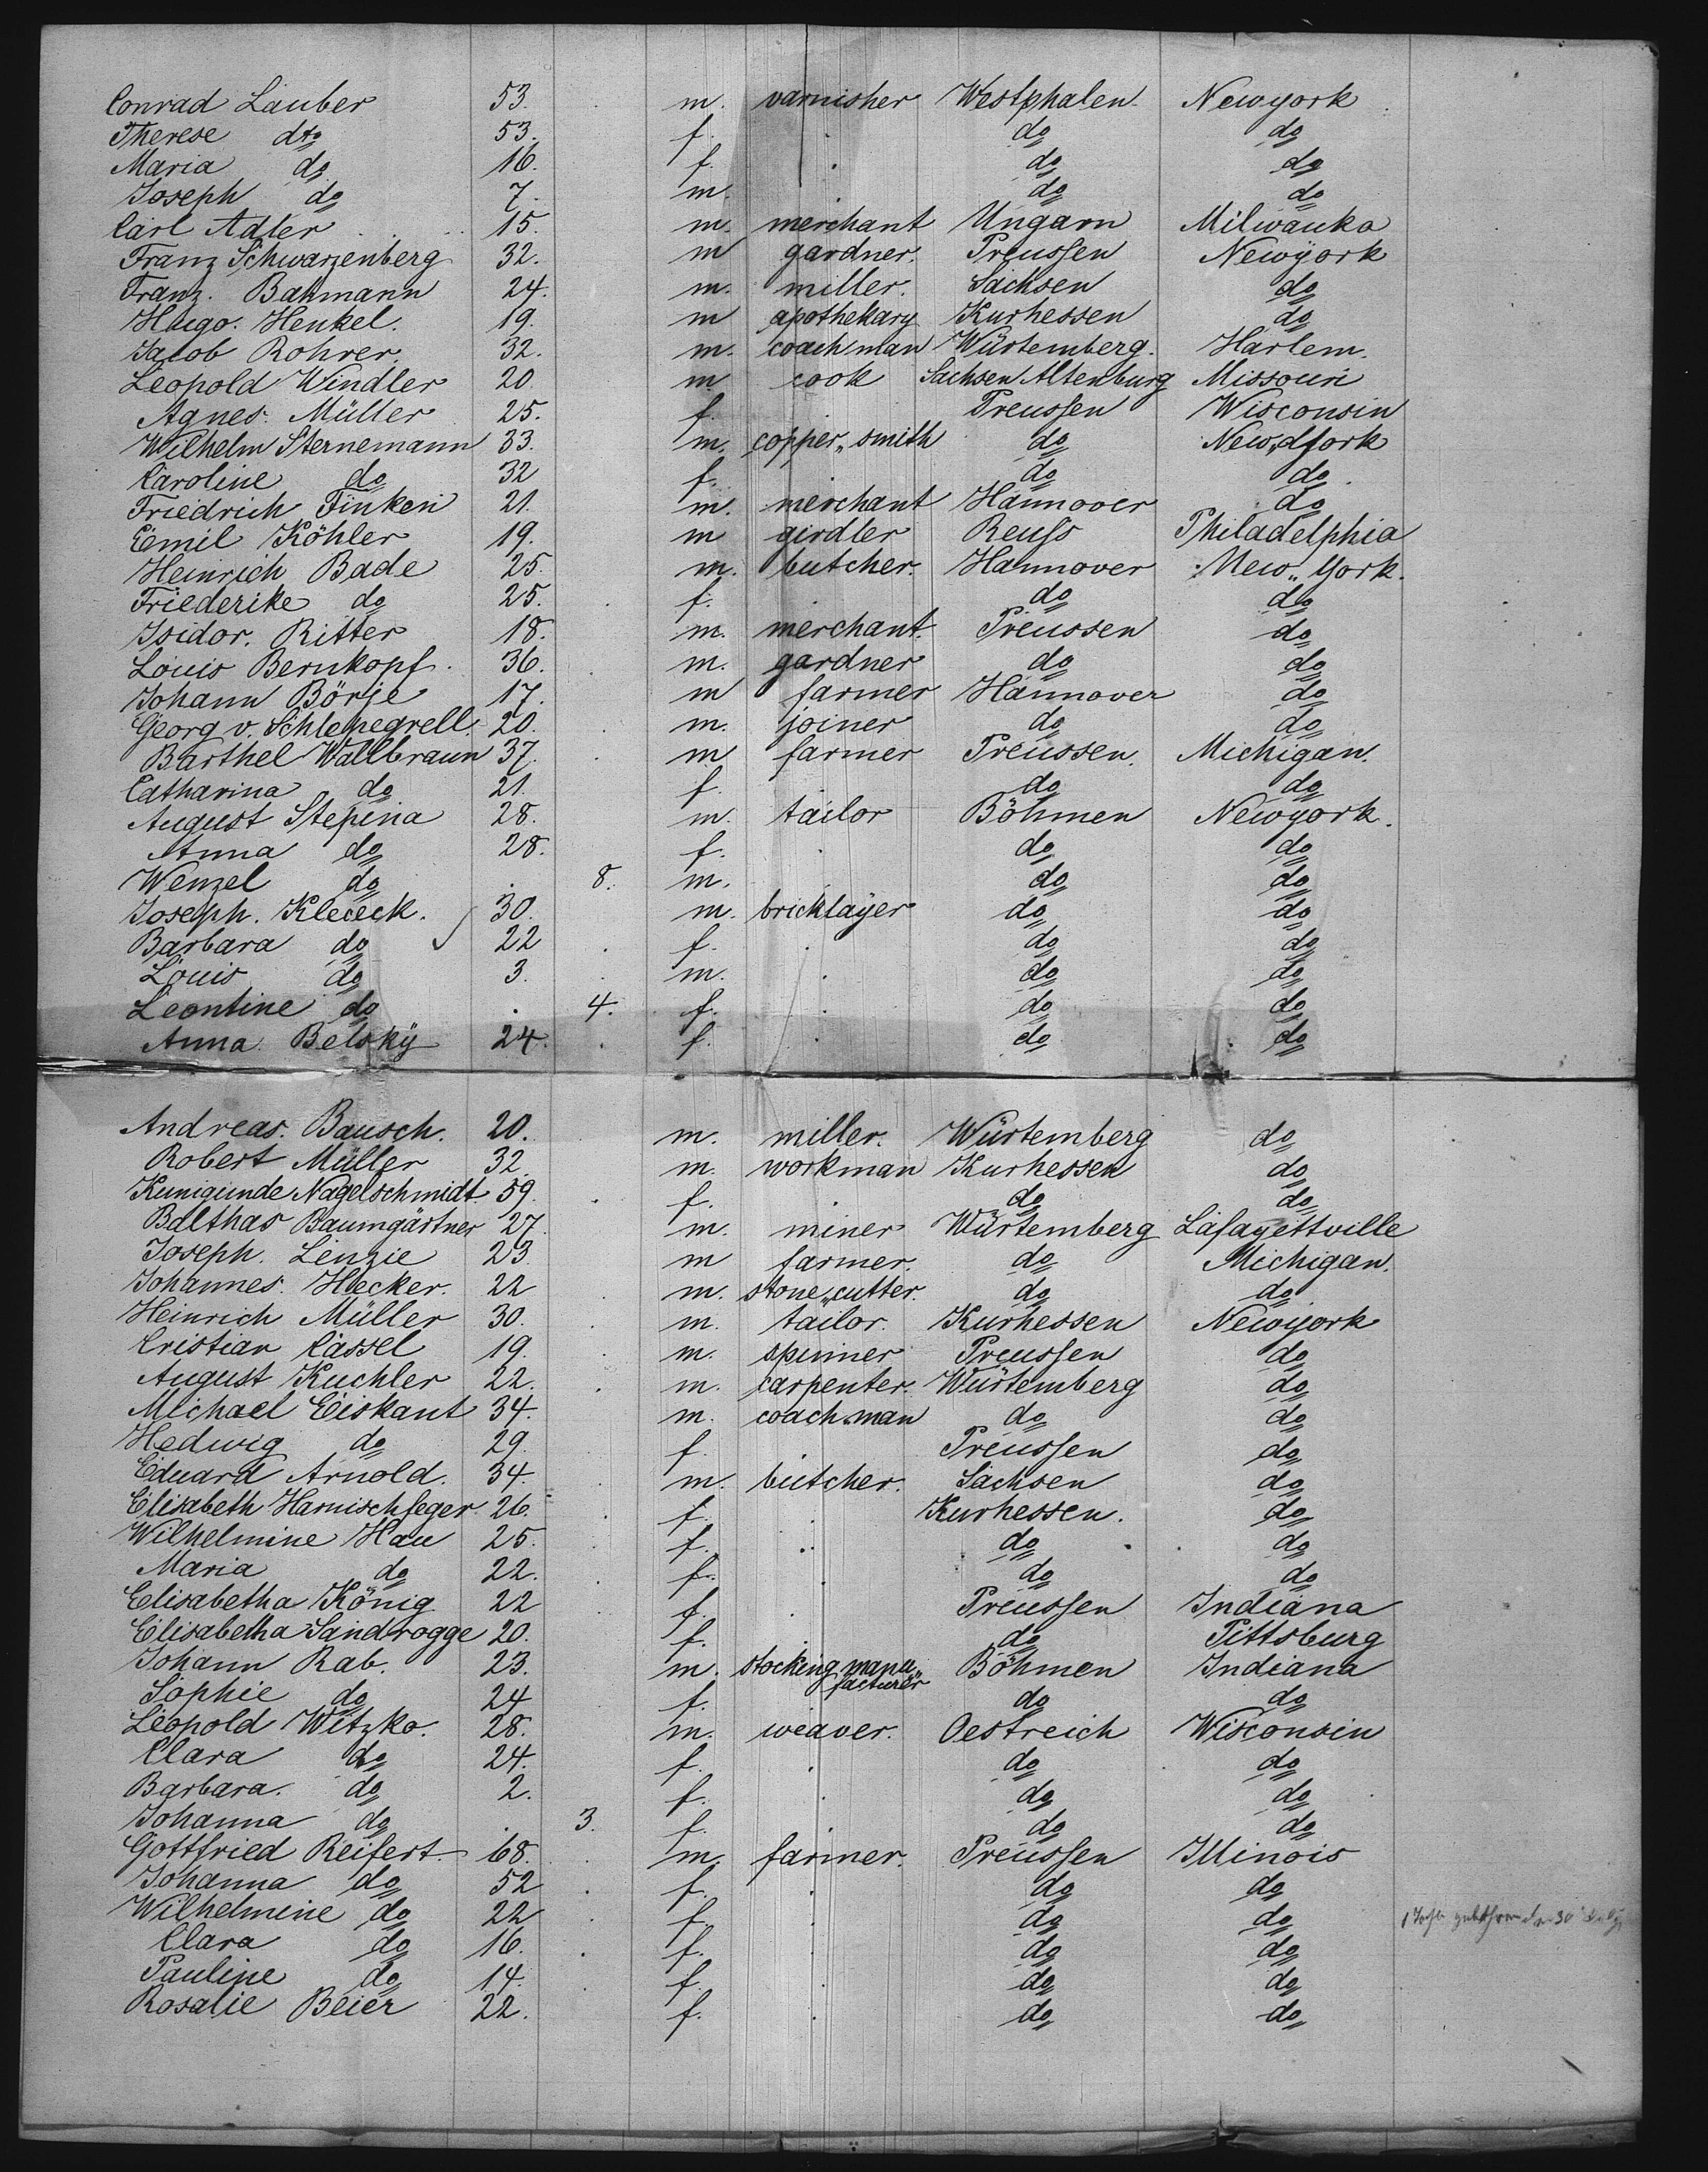 Conrad Lauber 53. m. varnisher Westphalen Newyork
Therese dto 53. f. do do
Maria do 16. f. do do
Joseph do 7. m. do do
Carl Adler 15. m. merchant Ungarn Milwauka
Franz Schwarzenberg 32. m gardner. Preussen Newyork
Franz. Bahmann 24. m. miller. Sachsen do
Hugo. Henkel. 19. m apothekary Kurhessen do
Jacob Rohrer. 32. m. coachman Würtemberg. Harlem.
Leopold Windler 20 m cook Sachsen Altenburg Missouri
Agnes. Müller 25. f. Preussen Wisconsin
Wilhelm Sternemann 33. m. copper„smith do New„York
Caroline do 32 f. do do
Friedrich Finken 21. m. merchant Hannover do
Emil Köhler 19. m girdler Reuss Philadelphia
Heinrich Bade 25. m. butcher. Hannover New„York.
Friederike do 25. f. do do
Isidor. Ritter 18. m. merchant. Preussen do
Louis Bernkopf. 36. m. gardner do do
Johann Börje 17. m farmer Hannover do
Georg v. Schlepegrell. 20. m. joiner do do
Barthel Wallbraun 37. m farmer Preussen. Michigan.
Catharina do 21. f. do do
August Stepina 28. m. tailor Böhmen Newyork.
Anna do 28. f. do do
Wenzel do . 8. m. do do
Joseph. Klececk. 30. m. bricklayer do do
Barbara do 22 f. do do
Louis do 3. m. do do
Leontine do . 4. f. do do
Anna Belsky 24. f. do do
Andreas. Bausch. 20. m. miller. Würtemberg do
Robert Müller 32. m. workman Kurhessen do
Kunigunde Nagelschmidt. 59. f. do do
Balthas Baumgärtner 27. m. miner Würtemberg Lafayettville
Joseph. Lenzie 23 m farmer. do Michigan.
Johannes. Hecker. 22 m. stone„cutter. do do
Heinrich Müller 30. m. tailor. Kurhessen Newyork
Cristian Cassel 19. m. spinner Preussen do
August Kuchler 22. m. carpenter. Würtemberg do
Michael Eiskant 34. m. coachman do do
Hedwig do 29. f. Preussen do
Eduard Arnold. 34. m. butcher. Sachsen do
Elisabeth Harnischfeger 26. f. Kurhessen. do
Wilhelmine Hau 25. f. do do
Maria do 22. f. do do
Elisabetha König 22 f. Preussen Indiana
Elisabetha Sandrogge 20. f. do Pittsburg
Johann Rab. 23. m. stocking manu„ Böhmen Indiana
facturer
Sophie do 24 f. do do
Leopold Witzko. 28. m. weaver. Oestreich Wisconsin
Clara do 24. f. do do
Barbara. do 2. f. do do
Johanna do . 3. f. do do
Gottfried Reifert. 68. m. farmer. Preussen Illinois
Johanna do 52 f. do do
Wilhelmine do 22 f. do do
Clara do 16. f. do do
Pauline do 14. f. do do
Rosalie Beier 22. f. do do